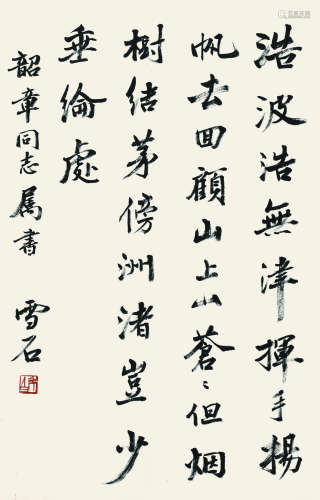 浩波浩無津揮手揚
帆去回顧山上山蒼々但烟
樹結茅傍洲渚豈少
垂綸處
韶章同志屬書
雪石